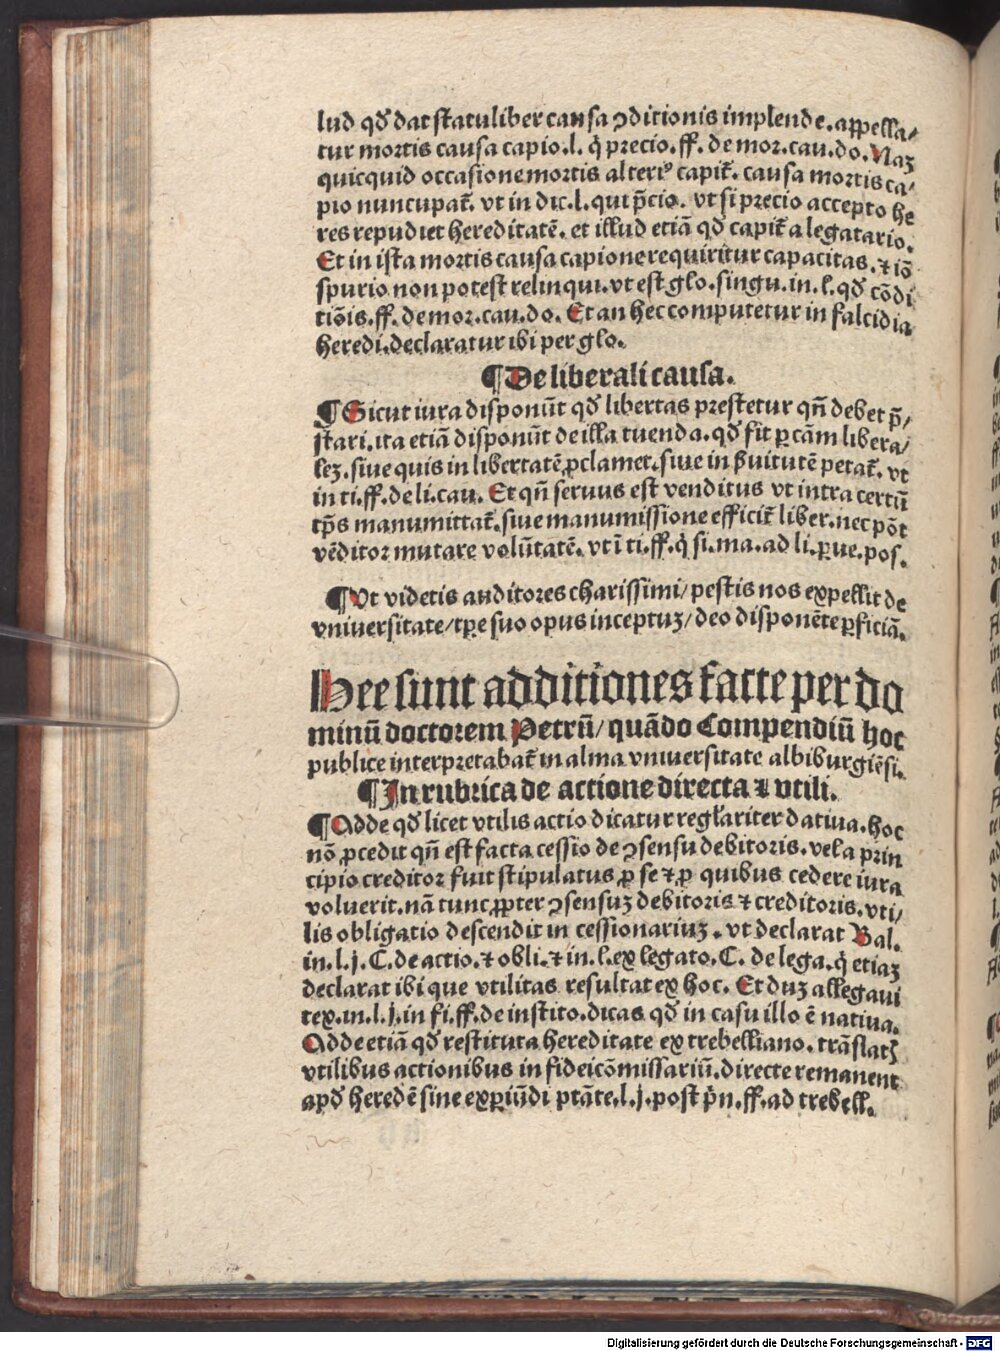 lud qd̕ dat statuliber causa ↄditionis implende. appella⸗
tur mortis causa capio. l. q̇ precio. ff. de mor. cau. do. Naʒ
quicquid occasione mortis alteriꝰ capit᷑. causa mortis ca⸗
pio nuncupat᷑. vt in dic. l. qui p̄cio. vt si precio accepto he
res repudiet hereditatē. et illud etiā qd̕ capit᷑ a legatario.
Et in ista mortis causa capione requiritur capacitas. ⁊ iō
spurio non potest relinqui. vt est glo. singu. in. l. qd̕ cōdi
tiōis. ff. de mor. cau. do. Et an hec computetur in falcidia
heredi. declaratur ibi per glo.
¶ De liberali causa.
¶ Sicut iura disponūt qd̕ libertas prestetur qn̄ debet p̄⸗
stari. ita etiā disponūt de illa tuenda. qd̕ fit ꝑ cām libera⸗
leʒ. siue quis in libertatē ꝓclamet. siue in ẜuitutē petat᷑. vt
in ti. ff. de li. cau. Et qn̄ seruus est venditus vt intra certū
tp̄s manumittat᷑. siue manumissione efficit᷑ liber. nec pōt
vēditor mutare volūtatē. vt ī ti. ff. q̇ si. ma. ad li. ꝑue. pos.
¶ Vt videtis auditores charissimi / pestis nos expellit de
vniuersitate / tꝑe suo opus inceptuʒ / deo disponēte ꝑficiā.
Hee sunt additiones facte per do
minū doctorem Petrū / quādo Compendiū hoc
publice interpretabat᷑ in alma vniuersitate albiburgiēsi.
¶ In rubrica de actione directa ⁊ vtili.
¶ Adde qd̕ licet vtilis actio dicatur regl̕ariter datiua. hoc
nō ꝓcedit qn̄ est facta cessio de ↄsensu debitoris. vel a prin
cipio creditor fuit stipulatus ꝓ se ⁊ ꝓ quibus cedere iura
voluerit. nā tunc ꝓpter ↄsensuʒ debitoris ⁊ creditoris. vti⸗
lis obligatio descendit in cessionariuʒ. vt declarat Bal.
in. l. j. C. de actio. ⁊ obli. ⁊ in. l. ex legato. C. de lega. q̇ etiaʒ
declarat ibi que vtilitas resultat ex hoc. Et duʒ allegaui
tex. in. l. j. in fi. ff. de instito. dicas qd̕ in casu illo ē natiua.
Adde etiā qd̕ restituta hereditate ex trebelliano. trāslatꝭ
vtilibus actionibus in fideicōmissariū. directe remanent
apd̕ heredē sine exꝑiūdi ptāte. l. j. post p̄n. ff. ad trebell.
Digitalisierung gefördert durch die Deutsche Forschungsgemeinschaft - DFG